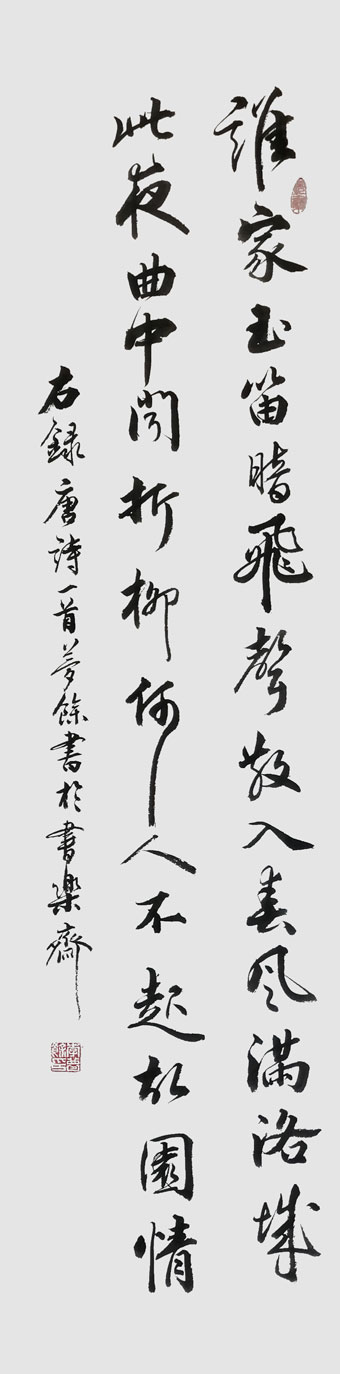 誰家玉笛暗飛聲散入春風滿洛城
此夜曲中聞折柳何人不起故園情
右録唐詩一首夢餘書於書樂齋